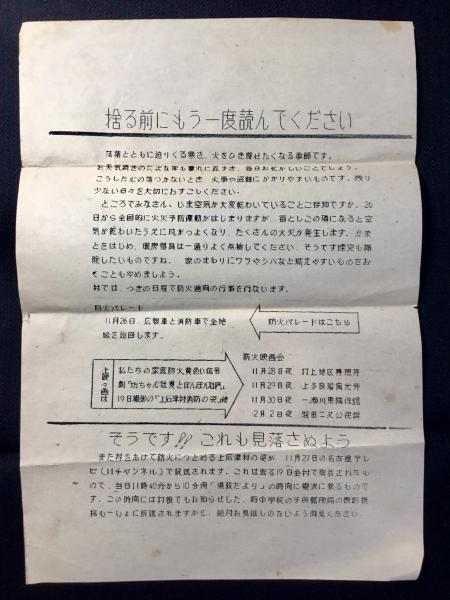 捨る前にもう一度読んでください
落葉とともに迫りくる寒さ、火をひき寄せたくなる季節です。
こうした心の落つかないとき、火事や盗難にかかりやすいものです。残り
少ない日々を大切におすごしください。
ところでみなさん、いま空気が大変乾いていることご存知ですか。26
日から全国的に火災予防運動がはじまりますが、毎としこの頃になると空
気が乾いたうえに風がつよくなり、たくさんの火災が発生します。かま
どをはじめ、暖房器具は一通りよく点検してください。そうです煙突も掃
除したいものですね。家のまわりにワラやシバなど燃えやすいものをお
くこともやめましょう。
村では、つぎの日程で防火週間の行事を行ないます。
防火パレード
11月26日、広報車と消防車で全地
域を巡回します。
防火パレードはこちら
上映々画は
私たちの家庭防火黄色い信号
劇「おちゃん社長とぽんぽん社員」
19日撮影の「上石津村消防の姿」他
防火映画会
11月28日夜
11月29日夜
11月30日夜
12月2日夜
そうです!! これも見落さぬよう
また村をあげて防火につとめる上石津村の姿が、11月27日の名古屋テレ
ビ(11チャンネル)で放送されます。これは去る19日全村で取材されたもの
で、当日11時40分から10分間「県政だより」の時間に電波に乗るもので
す。この時間には村報でもお知らせした、時中学校の子供郵便局の表彰模
様も一しょに放送されますから、絶対お見逃しのないよう御覧ください。